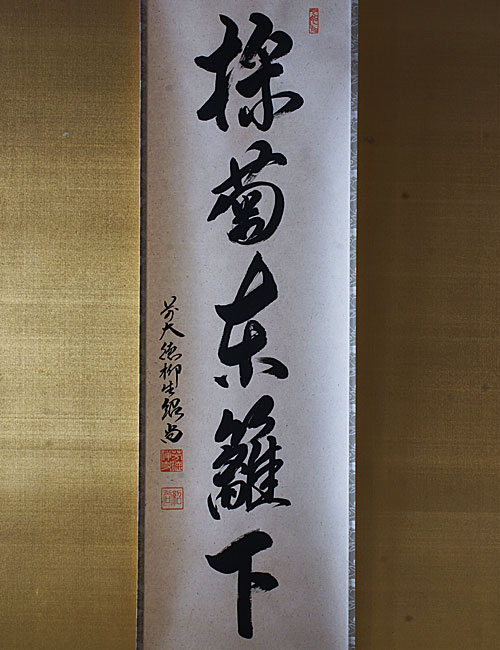 採菊東籬下
前大徳柳生紹尚